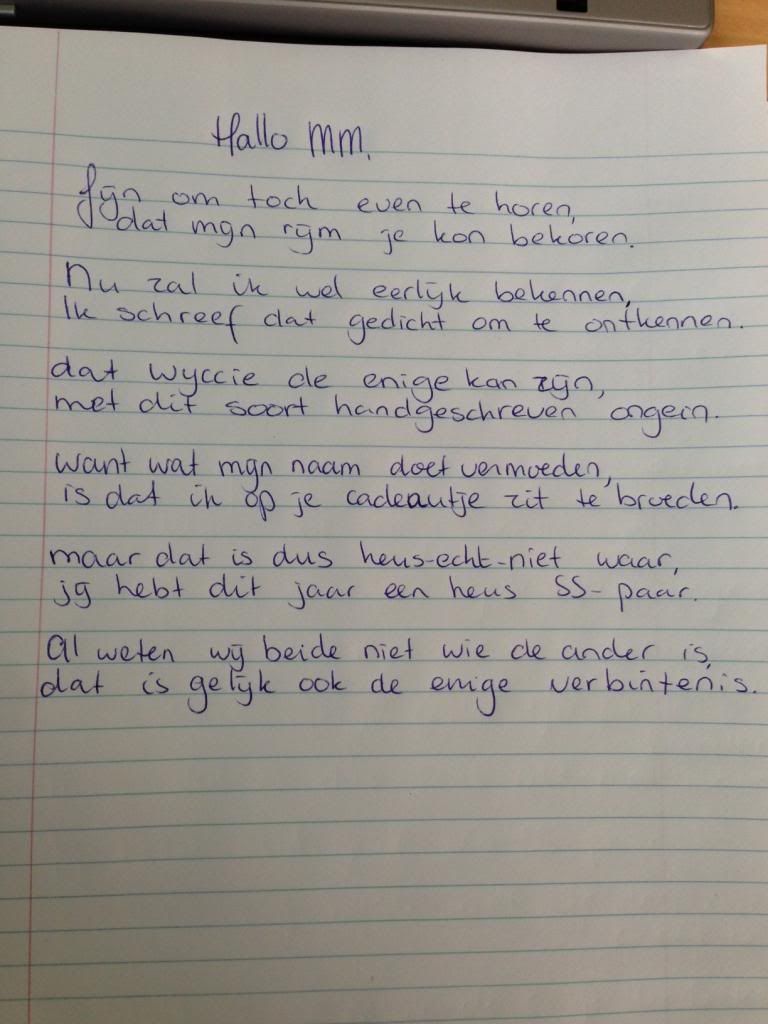 Hallo MM.
Fijn om toch even te horen,
dat mijn rijm je kon bekoren.
Nu zal ik wel eerlijk bekennen,
Ik schreef dat gedicht om te ontkennen.
dat wyccie de enige kan zijn,
met dit soort handgeschreven ongein.
want wat mijn naam doet vermoeden,
is dat ik op je cadeautje zit te broeden.
maar dat is dus heus-echt-niet waar,
jij hebt dit jaar een heus SS-paar.
Al weten wij beide niet wie de ander is,
dat is gelijk ook de enige verbintenis.